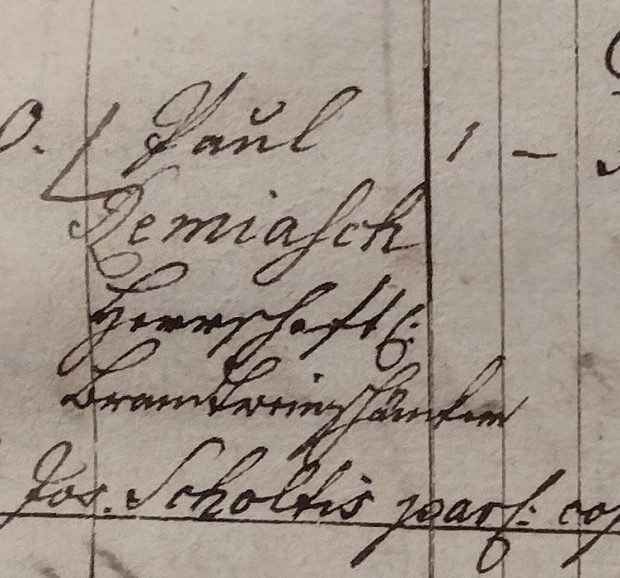 0. Paul 1 –
Demiasch
Herrschaftl:
Brandtweinschänker
Jos. Scholtis par: coo